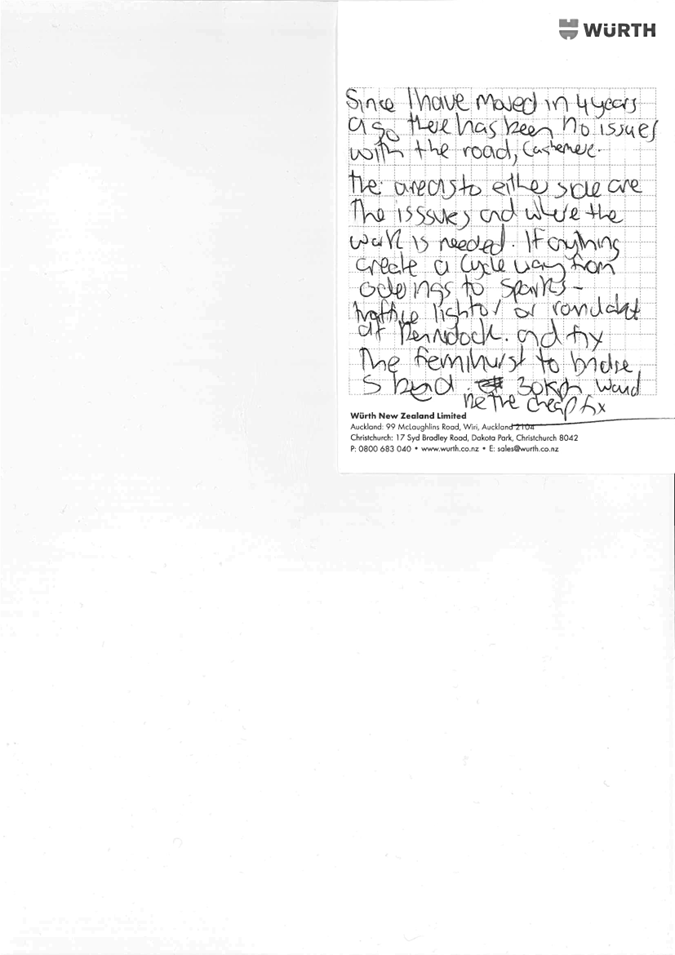 WÜRTH
Since I have moved in 4 years
ago there has been no issues
with the road, Cashmere.
The areas to either side are
The isssues and where the
work is needed. If anything
create a cycle way from
to Sparks -
traffic lights or or
at and fix
The fernihurst to
S bend. 30kph
be the cheap fix
Würth New Zealand Limited
Auckland: 99 McLaughlins Road, Wiri, Auckland 2104
Christchurch: 17 Syd Bradley Road, Dakota Park, Christchurch 8042
P: 0800 683 040 • www.wurth.co.nz • E: sales@wurth.co.nz